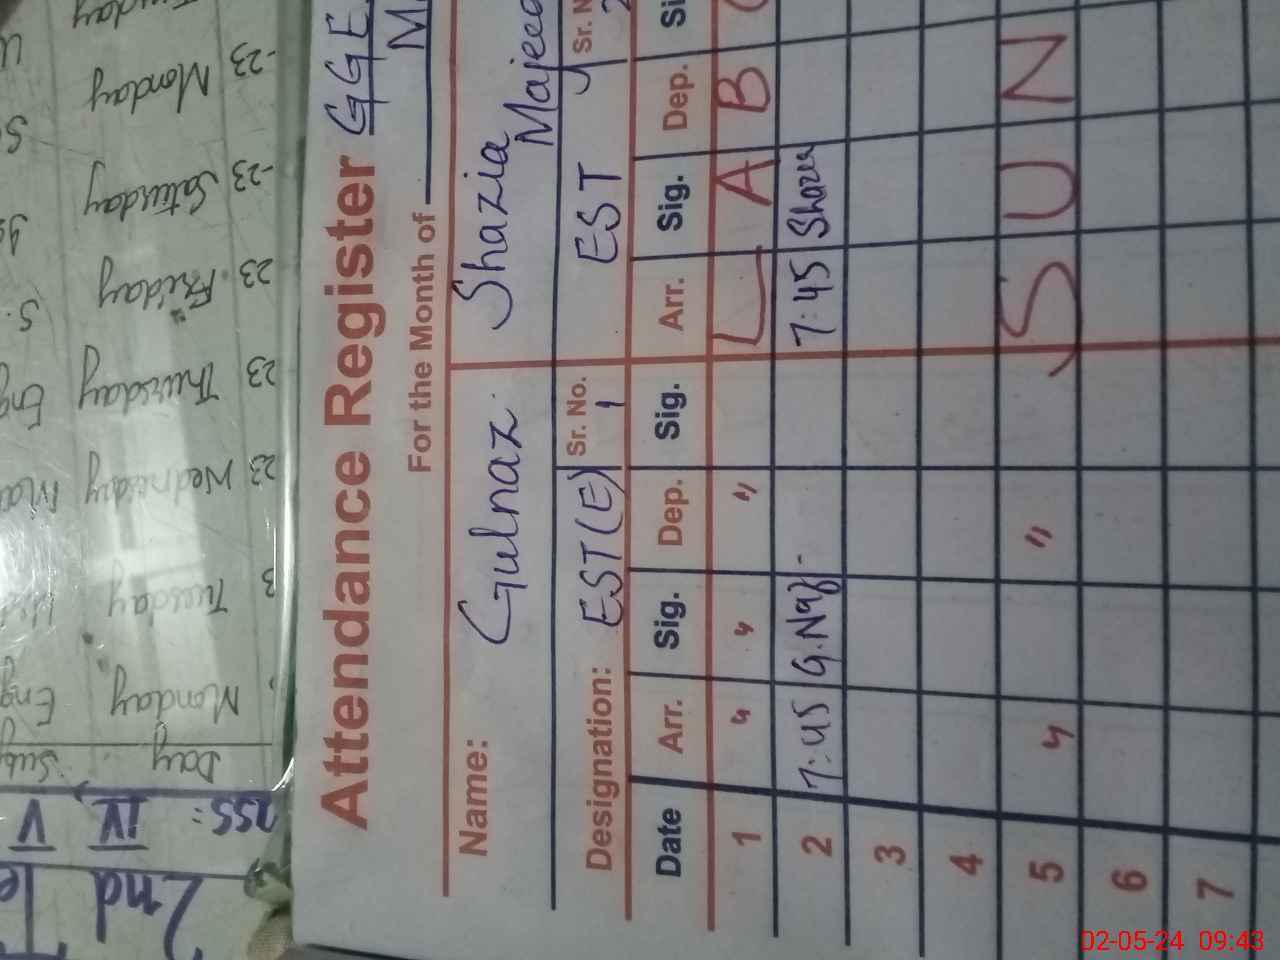 Attendance Register GGE
For the Month of M
Name: Gulnaz Shazia
Majeed
Designation: EST(E) Sr. No. 1 EST Sr. N
Date Arr. Sig. Dep. Sig. Arr. Sig. Dep. Si
1 " " " L A B
2 7:45 G.Naz 7:45 Shazia
3
4
5 " " S U N
6
7
2nd Te
ass: IV V
Day Subj
Monday Eng
Tuesday
23 Wednesday Ma
23 Thursday Eng
23 Friday S.
-23 Saturday
-23 Monday
02-05-24 09:43